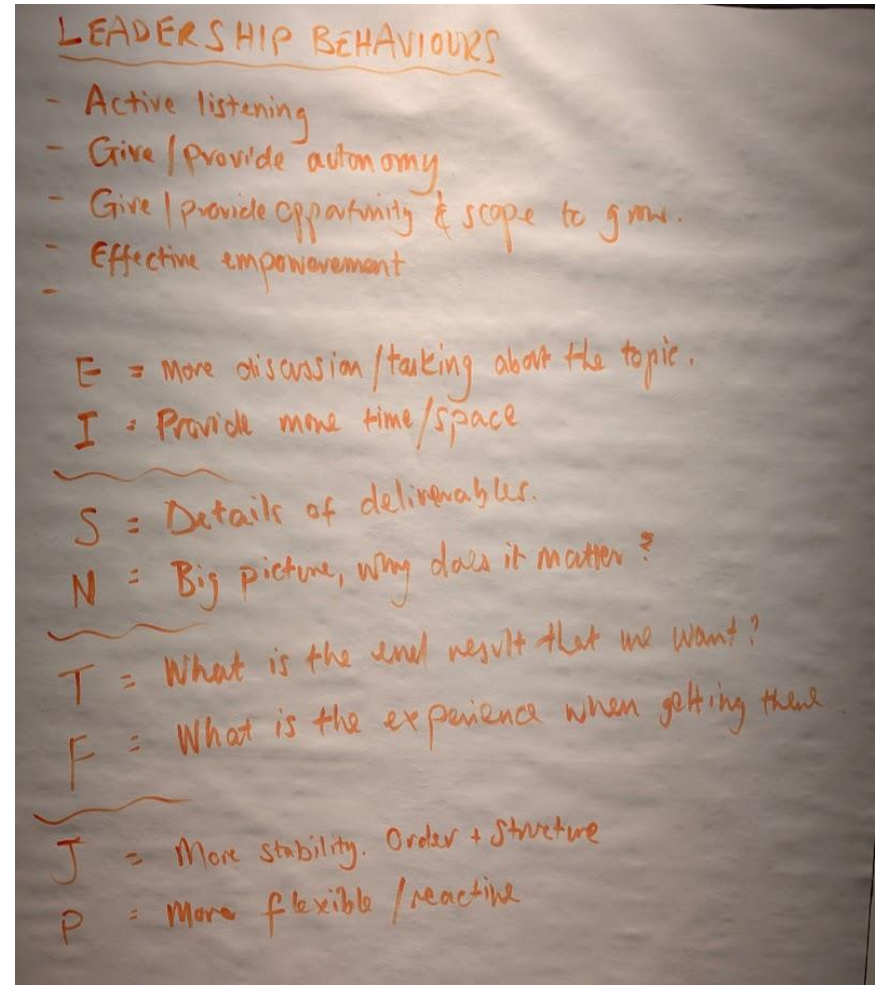 LEADERSHIP BEHAVIOURS
- Active listening
- Give/provide autonomy
- Give/provide opportunity & scope to grow.
- Effective empowerement
-
E = More discussion/talking about the topic.
I = Provide more time/space
S = Details of deliverables.
N = Big picture, why does it matter?
T = What is the end result that we want?
F = What is the experience when getting there.
J = More stability. Order + Structure
P = More flexible/reactive